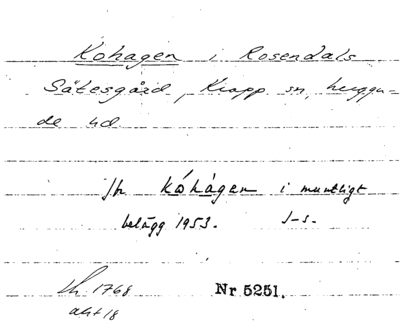 Kohagen i Rosendals
Sätesgård, Kropp sn, Luggu-
de hd
Jfr Kóhàgen i muntligt
belägg 1953. J-s.
Lh 1768
akt 18
Nr 5251.